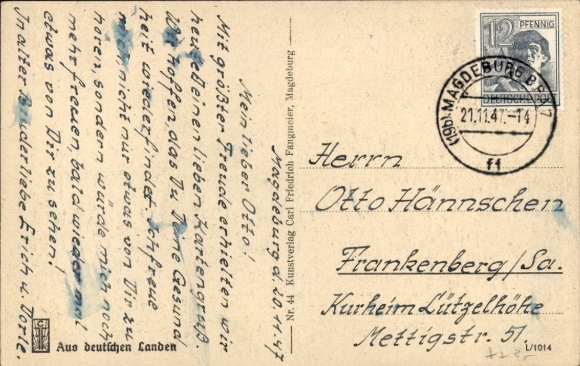 Magdeburg d. 20.11.47
Mein lieber Otto!
Mit größter Freude erhielten wir
heut Deinen lieben Kartengruß.
Wir hoffen das Du Deine Gesund
heit wiederfindest. Ich freue
mich, nicht nur etwas von Dir zu
hören, sondern würde mich noch
mehr freuen bald wieder mal
etwas von Dir zu sehen!
In alter Bruderliebe Erich u. Dorle.
Aus deutschen Landen
Nr. 44 Kunstverlag Carl Friedrich Fangmeier, Magdeburg
12 PFENNIG
DEUTSCHE POST
(19b) MAGDEBURG
21.11.47.-14
f1
Herrn
Otto Hännschen
Frankenberg/Sa.
Kurheim Lützelhöhe
Mettigstr. 51.
L/1014